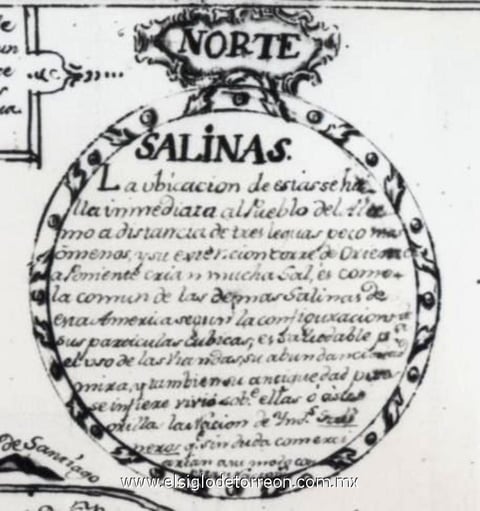 NORTE
SALINAS.
La ubicacion de estas se ha-
lla inmediata al Pueblo del Ala-
mo a distancia de tres leguas poco mas
ò menos, y su extencion torre de Oriente
a Poniente crian mucha Sal, es como
la comun de las demas Salinas de
esta America segun la configuracion de
sus particulas Cubicas, es saludable pa
el uso de las viandas, su abundancia
mira, y tambien su antiguedad pues
se infiere vivio sobe. ellas ó à su
orilla la Nacion de Yns. Sali
neros qe. sin duda comerci
arian
de Santiago
www.elsiglodetorreon.com.mx